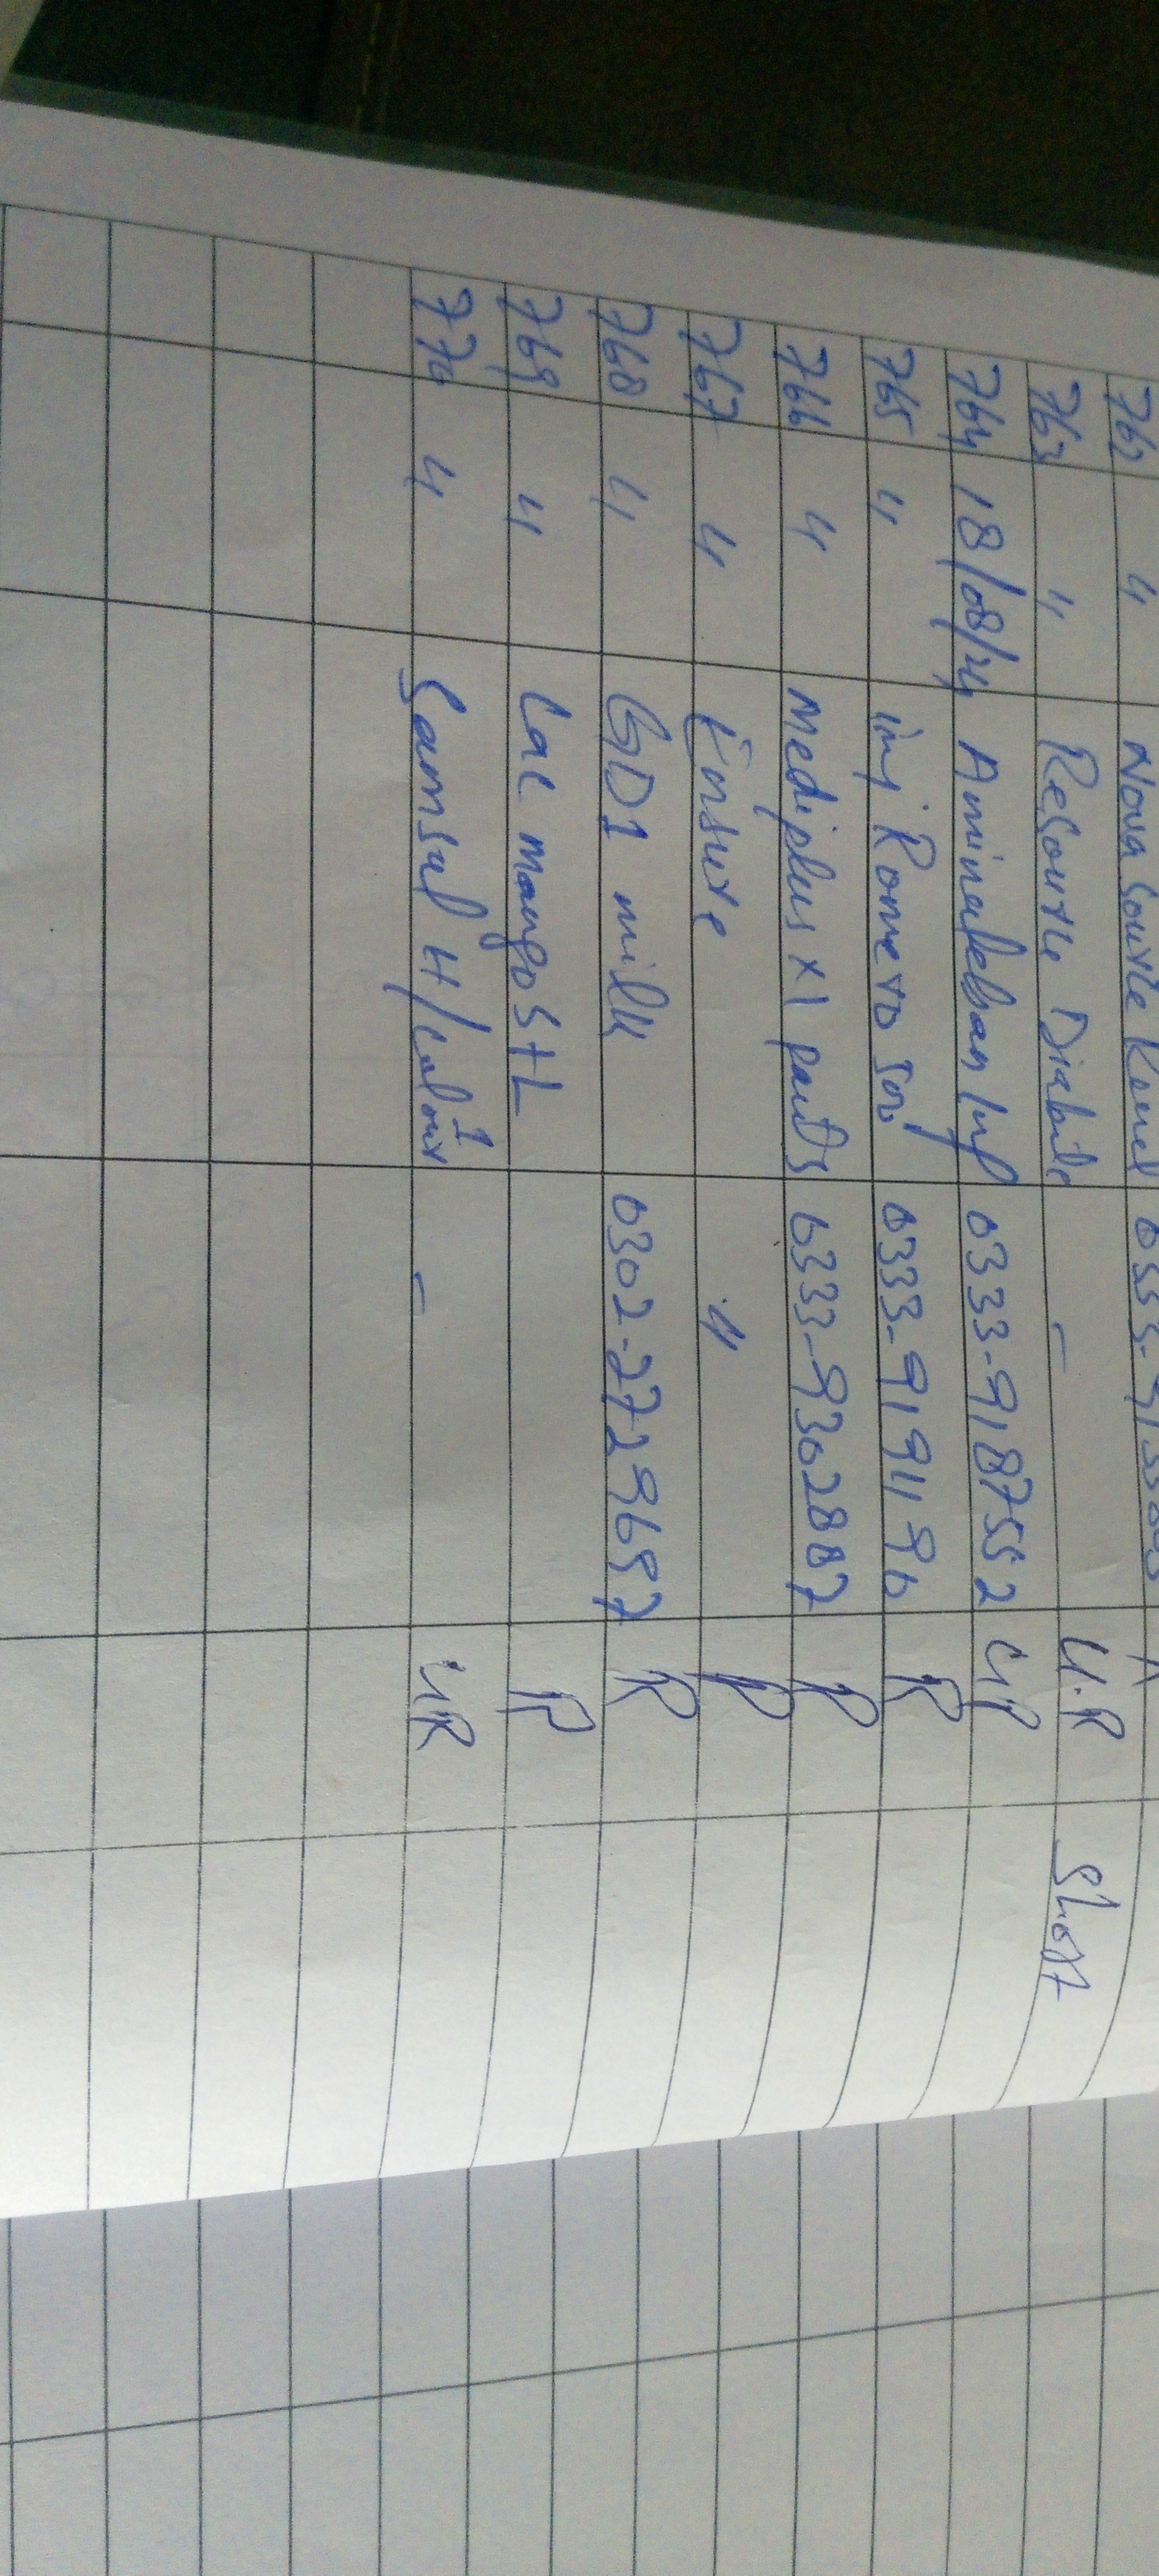 762 " Nova Source Renal
763 " Resource Diabetic – U.R Short
764 18/08/24 Aminoleban Inf 0333-9187552 UR
765 " inj Romero 0333-9194196 R
766 " Mediplus x1 pants 0333-9302887 R
767 " Ensure " R
768 " GD1 milk 0302-2729657 R
769 " Lac mango StL R
770 " Samsul H/Colour 1 – UR